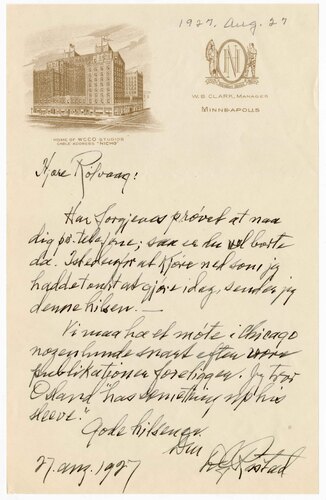 1927, Aug. 27
HOME OF WCCO STUDIOS
CABLE ADDRESS "NICHO"
W. B. CLARK, MANAGER
MINNEAPOLIS
Kjære Rölvaag!
Har forgjeves prøvet at naa
dig pr. telefone; saa er du vel borte
da. Istedenfor at kjøre ned som jeg
hadde tænkt at gjøre idag, sender jeg
denne hilsen. —
Vi maa ha et møte i Chicago
nogenlunde snart efter
publikationen foreligger. Jeg tror
"has something up his
sleeve".
Gode hilsener
Din
27. aug. 1927